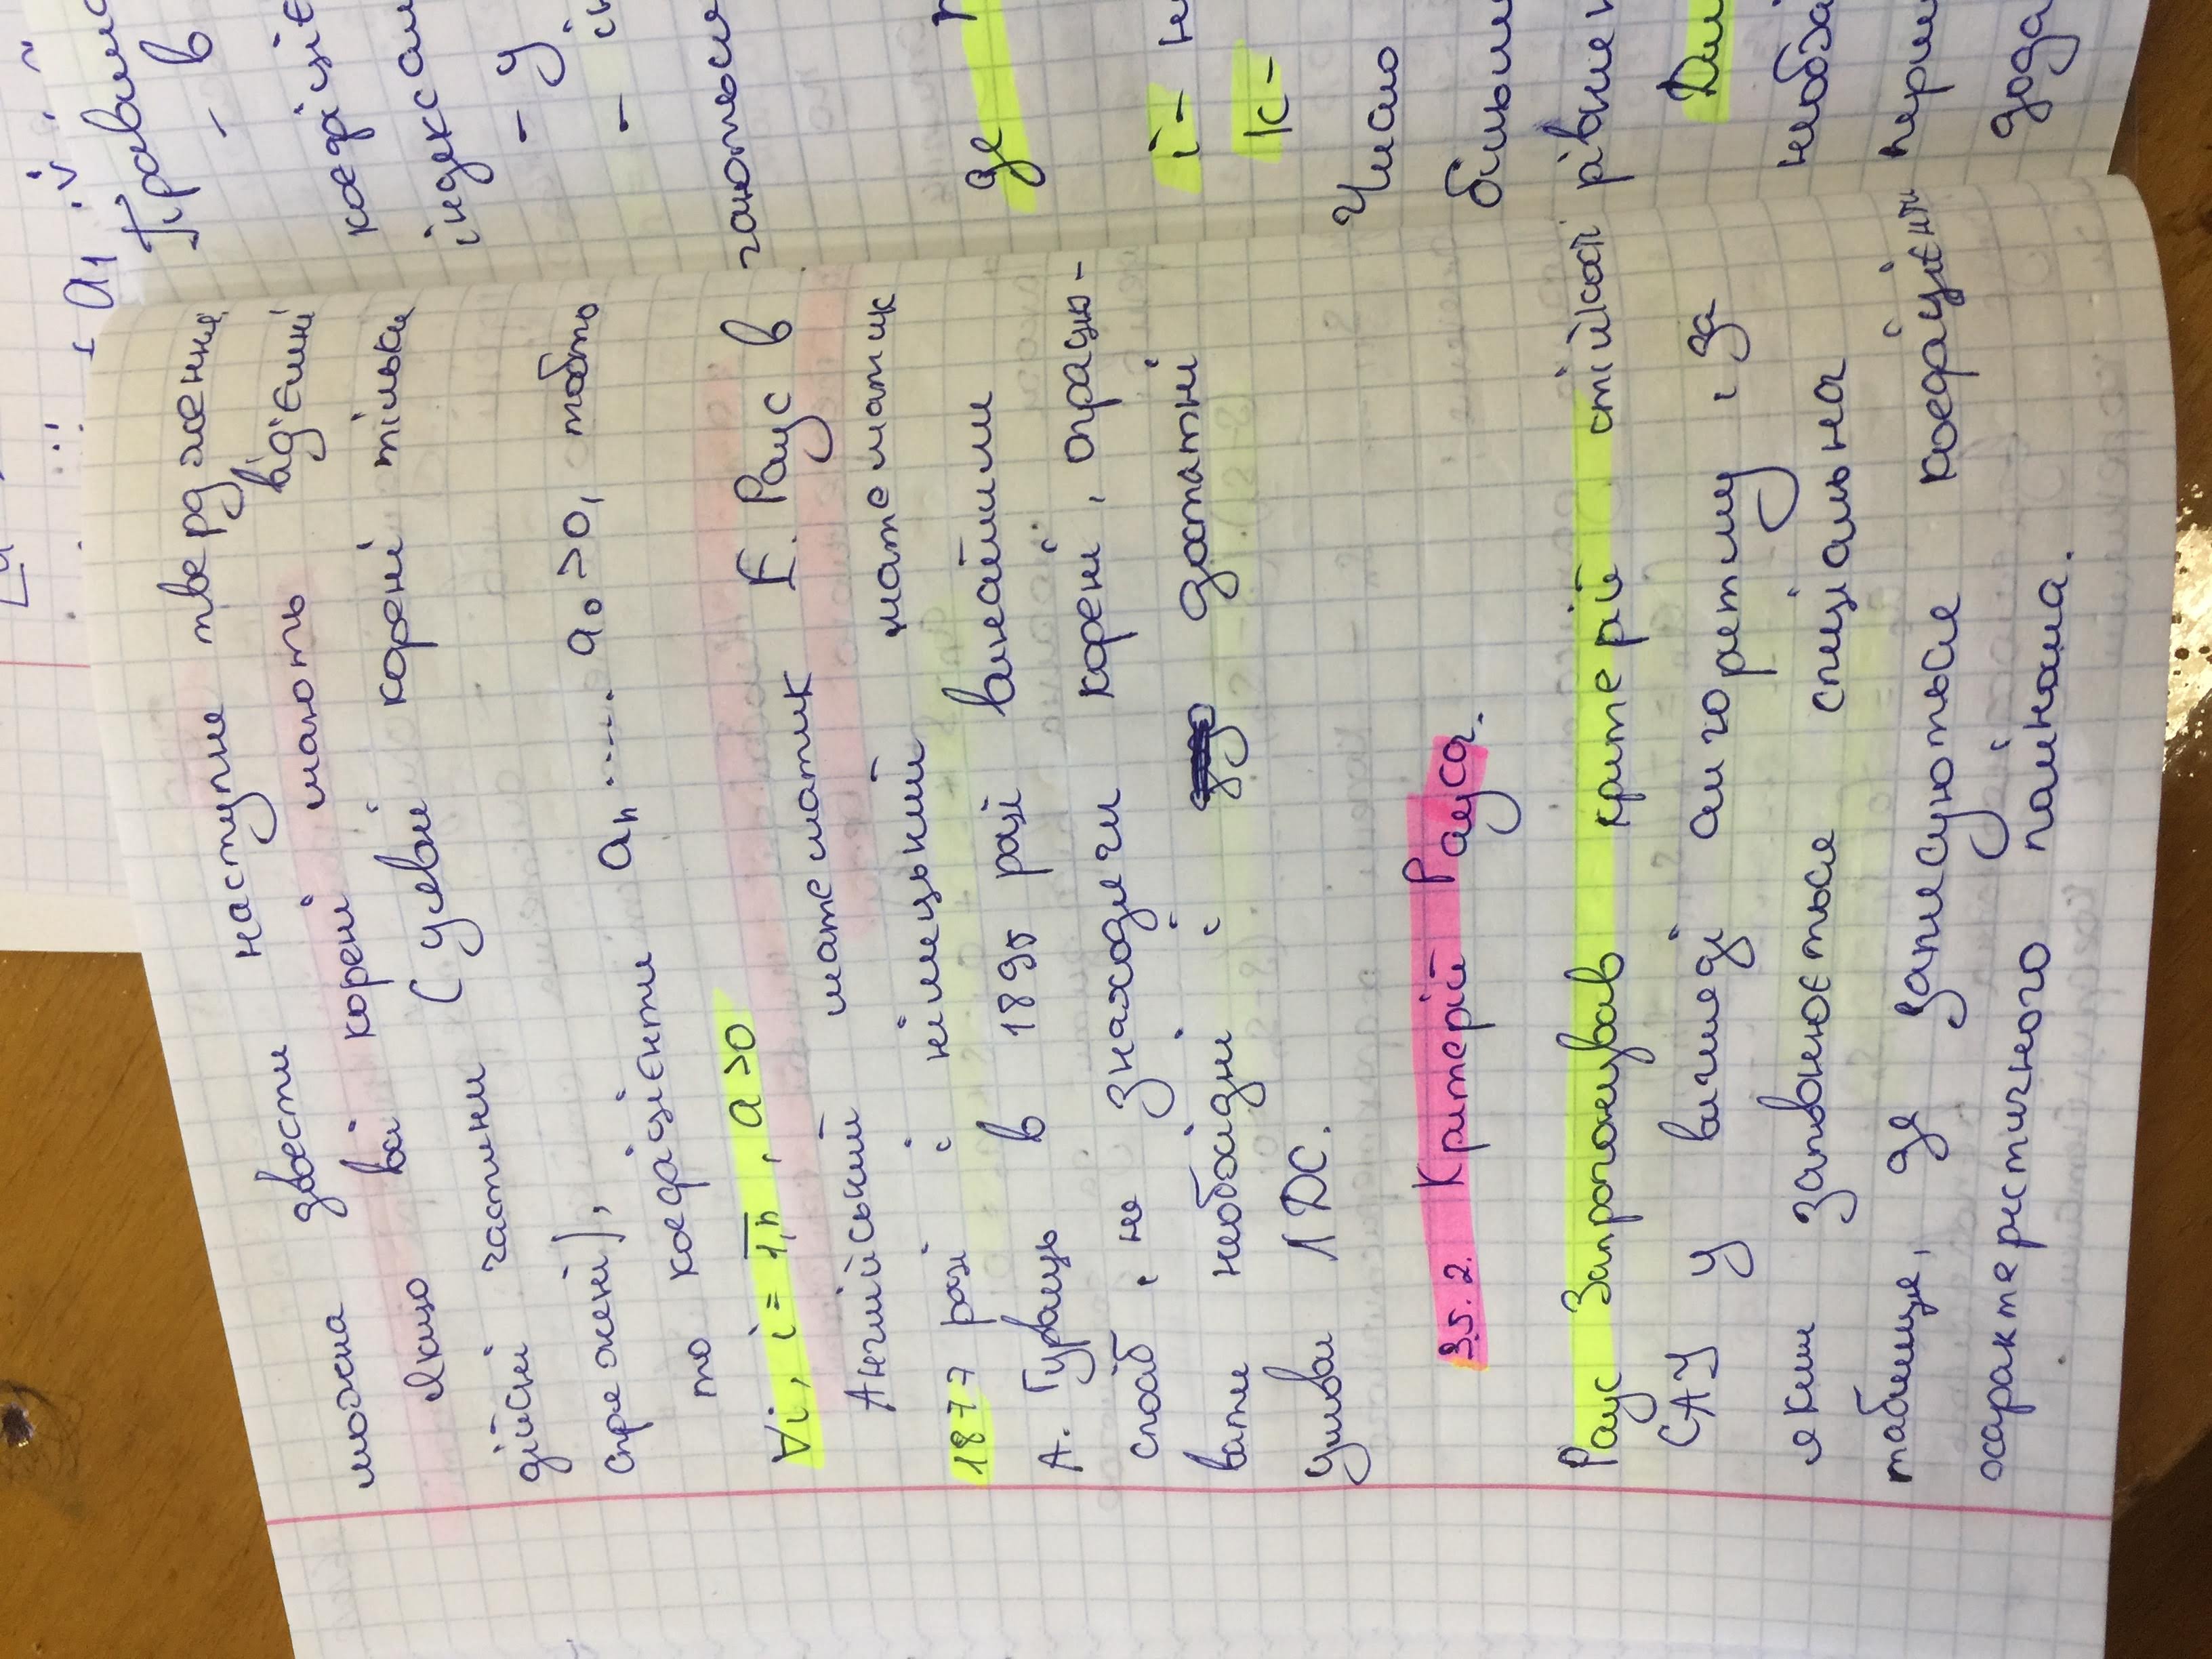 можна довести наступне твердження
якщо всі корені мають від'ємні
дійсні частини (уявні корені тільки
спряжені),
то коефіцієнти an ..... a0 >0, тобто
∀i, i = 1,n , a >0
Англійський математик Е. Раус в
1877 році і німецький математик
А. Гурвиць в 1895 році винайшли
спосіб, не знаходячи корені, опрацю-
вати необхідні і достатні
умови ЛДС.
3.5.2. Критерій Рауса.
Раус Запропонував критерій стійкості
САУ у вигляді алгоритму, за
яким заповнюється спеціальна
таблиця, де записуються коефіцієнти
характеристичного полінома.
a1
- в
індексам
- у
де
і -
к -
Число